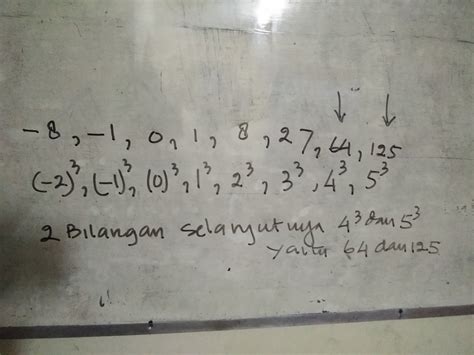 -8, -1, 0, 1, 8, 27, 64, 125
(-2)³, (-1)³, (0)³, 1³, 2³, 3³, 4³, 5³
2 Bilangan selanjutnya 4³ dan 5³
yaitu 64 dan 125